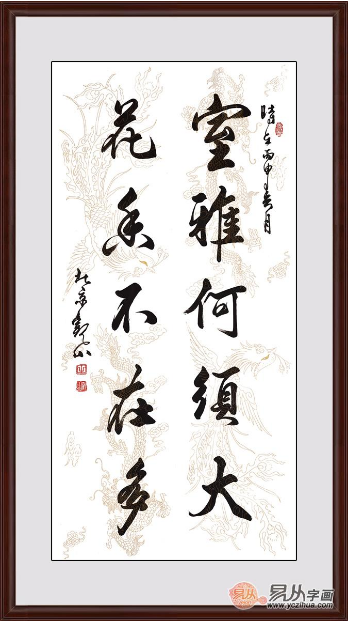 時在丙申
室雅何須大
花香不在多
北京
易从
易从字画
www.yczihua.com